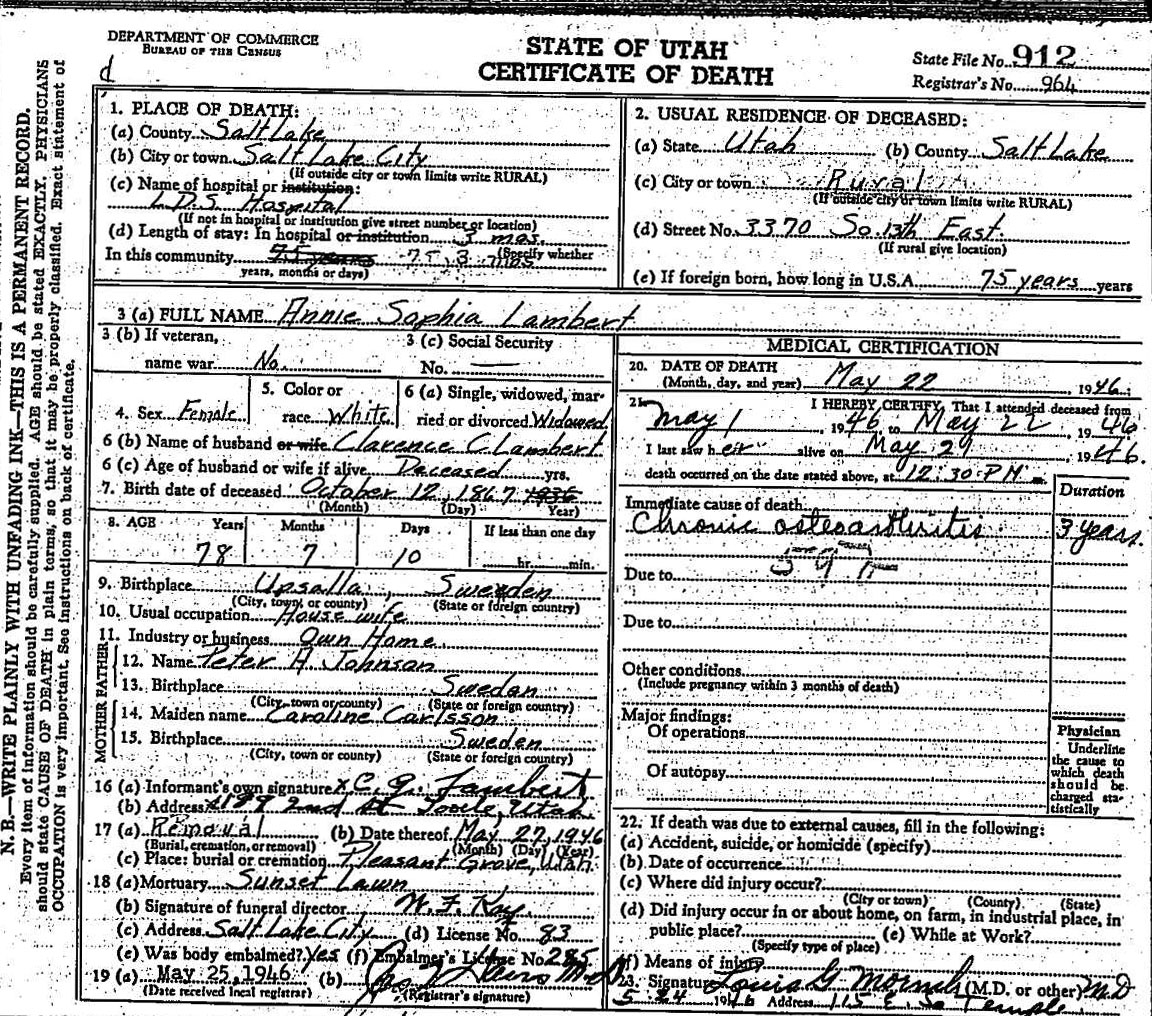 DEPARTMENT OF COMMERCE
BUREAU OF THE CENSUS
d
STATE OF UTAH
CERTIFICATE OF DEATH
State File No. 912
Registrar's No. 964
N. B.—WRITE PLAINLY WITH UNFADING INK—THIS IS A PERMANENT RECORD.
Every item of information should be carefully supplied. AGE should be stated EXACTLY. PHYSICIANS
should state CAUSE OF DEATH in plain terms, so that it may be properly classified. Exact statement of
OCCUPATION is very important. See instructions on back of certificate.
1. PLACE OF DEATH:
(a) County Salt Lake
(b) City or town Salt Lake City
(If outside city or town limits write RURAL)
(c) Name of hospital or institution:
L.D.S. Hospital
(If not in hospital or institution give street number or location)
(d) Length of stay: In hospital or institution 3 mos.
(Specify whether
In this community 75 years 75, 3 mos
years, months or days)
2. USUAL RESIDENCE OF DECEASED:
(a) State Utah (b) County Salt Lake
(c) City or town Rural
(If outside city or town limits write RURAL)
(d) Street No. 3370 So. 13th East.
(If rural give location)
(e) If foreign born, how long in U.S.A 75 years years
3 (a) FULL NAME Annie Sophia Lambert
3 (b) If veteran,
name war No.
3 (c) Social Security
No. —
4. Sex Female
5. Color or
race White
6 (a) Single, widowed, mar-
ried or divorced Widowed
6 (b) Name of husband or wife Clarence C Lambert
6 (c) Age of husband or wife if alive Deceased yrs.
7. Birth date of deceased October 12, 1867 1936
(Month) (Day) Year)
8. AGE Years Months Days If less than one day
78 7 10 hr. min.
9. Birthplace Upsalla, Sweeden
(City, town, or county) (State or foreign country)
10. Usual occupation House wife
11. Industry or business Own Home
FATHER
12. Name Peter A. Johnson
13. Birthplace Swedan
(City, town or county) (State or foreign country)
MOTHER
14. Maiden name Caroline Carlsson
15. Birthplace Sweden
(City, town or county) (State or foreign country)
16 (a) Informant's own signature x C. G. Lambert
(b) Address 2nd St Tooele, Utah
17 (a) Removal (b) Date thereof May 27, 1946
(Burial, cremation, or removal) (Month) (Day) (Year)
(c) Place: burial or cremation Pleasant Grove, Utah
18 (a) Mortuary Sunset Lawn
(b) Signature of funeral director W. F. Kay.
(c) Address Salt Lake City (d) License No. 83
(e) Was body embalmed? Yes (f) Embalmer's License No. 285
19 (a) May 25, 1946 (b)
(Date received local registrar) (Registrar's signature)
MEDICAL CERTIFICATION
20. DATE OF DEATH
(Month, day, and year) May 22 1946
21. I HEREBY CERTIFY, That I attended deceased from
May 1, 1946 to May 22, 1946
I last saw her alive on May 21 1946.
death occurred on the date stated above, at 12:30 P M m.
Duration
Immediate cause of death
Chronic osteoarthritis 3 years.
Due to
Due to
Other conditions
(Include pregnancy within 3 months of death)
Major findings:
Of operations
Of autopsy
Physician
Underline
the cause to
which death
should be
charged sta-
tistically
22. If death was due to external causes, fill in the following:
(a) Accident, suicide, or homicide (specify)
(b) Date of occurrence
(c) Where did injury occur?
(City or town) (County) (State)
(d) Did injury occur in or about home, on farm, in industrial place, in
public place? (e) While at Work?
(Specify type of place)
(f) Means of injury
23. Signature Louis G. (M.D. or other) M D
5-24 1946 Address 115 E. So Temple